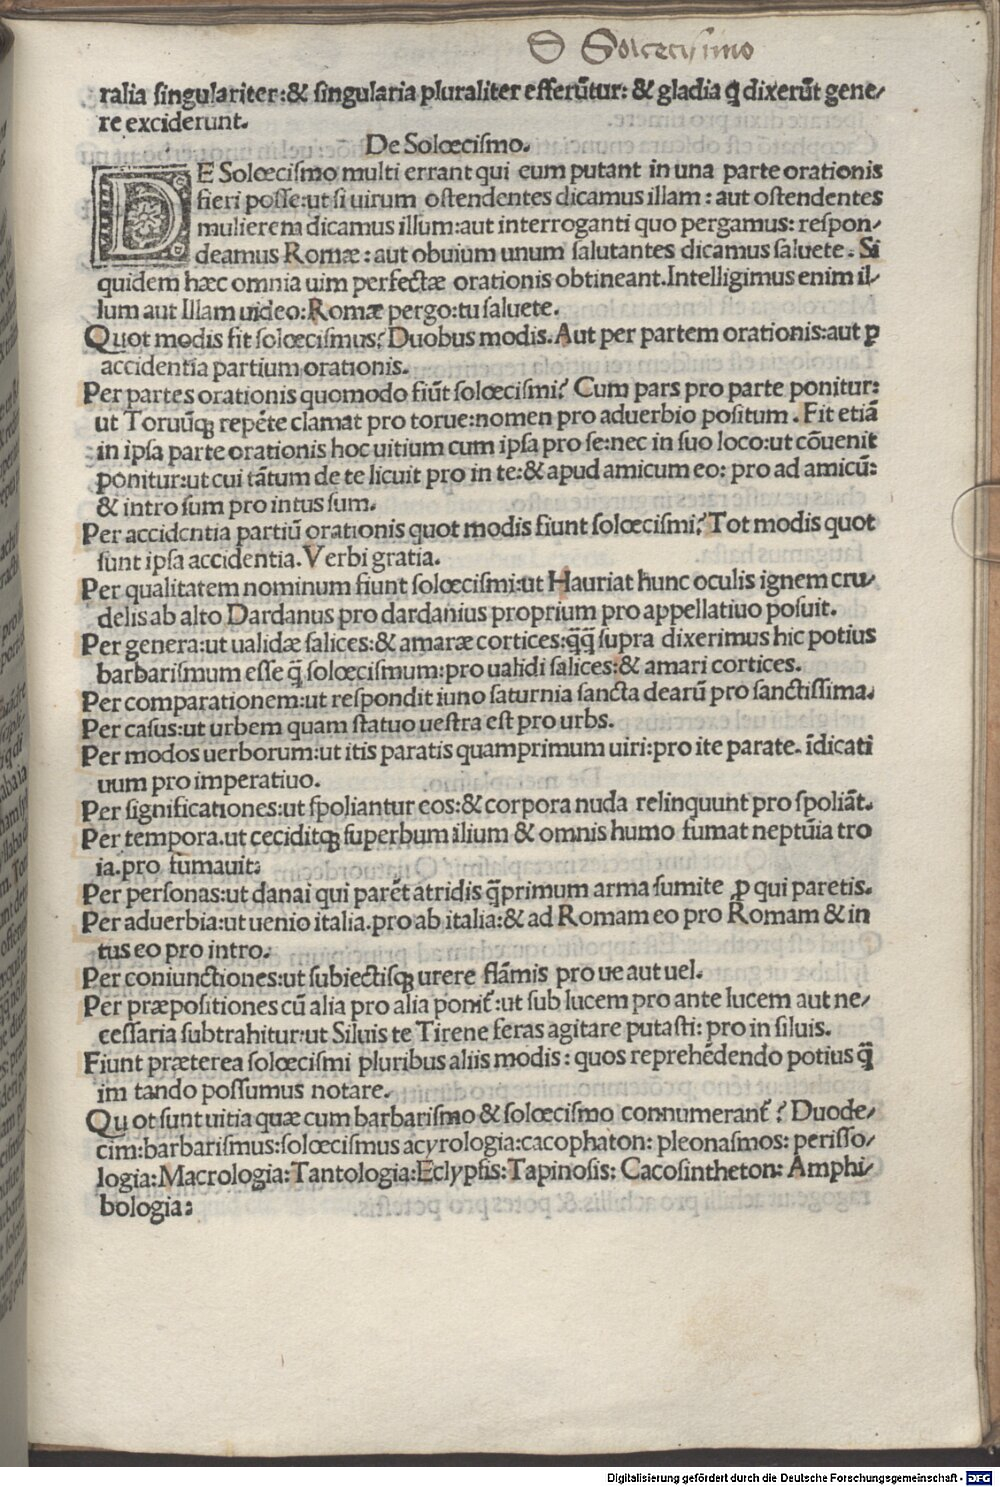 D Solecisimo
ralia singulariter:& singularia pluraliter efferũtur: & gladia q̃ dixerũt gene/
re exciderunt.
De Solœcismo.
DE Solœcismo multi errant qui eum putant in una parte orationis
fieri posse:ut si uirum ostendentes dicamus illam : aut ostendentes
mulierem dicamus illum:aut interroganti quo pergamus: respon/
deamus Romæ : aut obuium unum salutantes dicamus saluete. Si
quidem hæc omnia uim perfectæ orationis obtineant.Intelligimus enim il/
lum aut Illam uideo:Romæ pergo:tu saluete.
Quot modis fit solœcismus? Duobus modis. Aut per partem orationis:aut ꝑ
accidentia partium orationis.
Per partes orationis quomodo fiũt solœcismi? Cum pars pro parte ponitur:
ut Toruũqꝫ repẽte clamat pro torue:nomen pro aduerbio positum. Fit etiã
in ipsa parte orationis hoc uitium cum ipsa pro se:nec in suo loco:ut cõuenit
ponitur:ut cui tãtum de te licuit pro in te:& apud amicum eo: pro ad amicũ:
& intro sum pro intus sum.
Per accidentia partiũ orationis quot modis fiunt solœcismi? Tot modis quot
sunt ipsa accidentia. Verbi gratia.
Per qualitatem nominum fiunt solœcismi:ut Hauriat hunc oculis ignem cru/
delis ab alto Dardanus pro dardanius proprium pro appellatiuo posuit.
Per genera:ut ualidæ salices:& amaræ cortices:q̃q̃ supra dixerimus hic potius
barbarismum esse q̃ solœcismum:pro ualidi salices:& amari cortices.
Per comparationem:ut respondit iuno saturnia sancta dearũ pro sanctissima.
Per casus:ut urbem quam statuo uestra est pro urbs.
Per modos uerborum:ut itis paratis quamprimum uiri:pro ite parate. ĩdicati
uum pro imperatiuo.
Per significationes:ut spoliantur eos:& corpora nuda relinquunt pro spoliãt.
Per tempora.ut ceciditqꝫ superbum ilium & omnis humo fumat neptũia tro
ia.pro fumauit:
Per personas:ut danai qui parẽt atridis q̃primum arma sumite ꝓ qui paretis.
Per aduerbia:ut uenio italia.pro ab italia:& ad Romam eo pro Romam & in
tus eo pro intro.
Per coniunctiones:ut subiectisqꝫ urere flãmis pro ue aut uel.
Per præpositiones cũ alia pro alia ponit̃ :ut sub lucem pro ante lucem aut ne/
cessaria subtrahitur:ut Siluis te Tirene feras agitare putasti: pro in siluis.
Fiunt præterea solœcismi pluribus aliis modis : quos reprehẽdendo potius q̃
im tando possumus notare.
Qu ot sunt uitia quæ cum barbarismo & solœcismo connumerant̃ ? Duode/
cim:barbarismus:solœcismus acyrologia:cacophaton: pleonasmos: perisso/
logia:Macrologia:Tantologia:Eclypsis:Tapinosis: Cacosintheton: Amphi/
bologia:
Digitalisierung gefördert durch die Deutsche Forschungsgemeinschaft - DFG